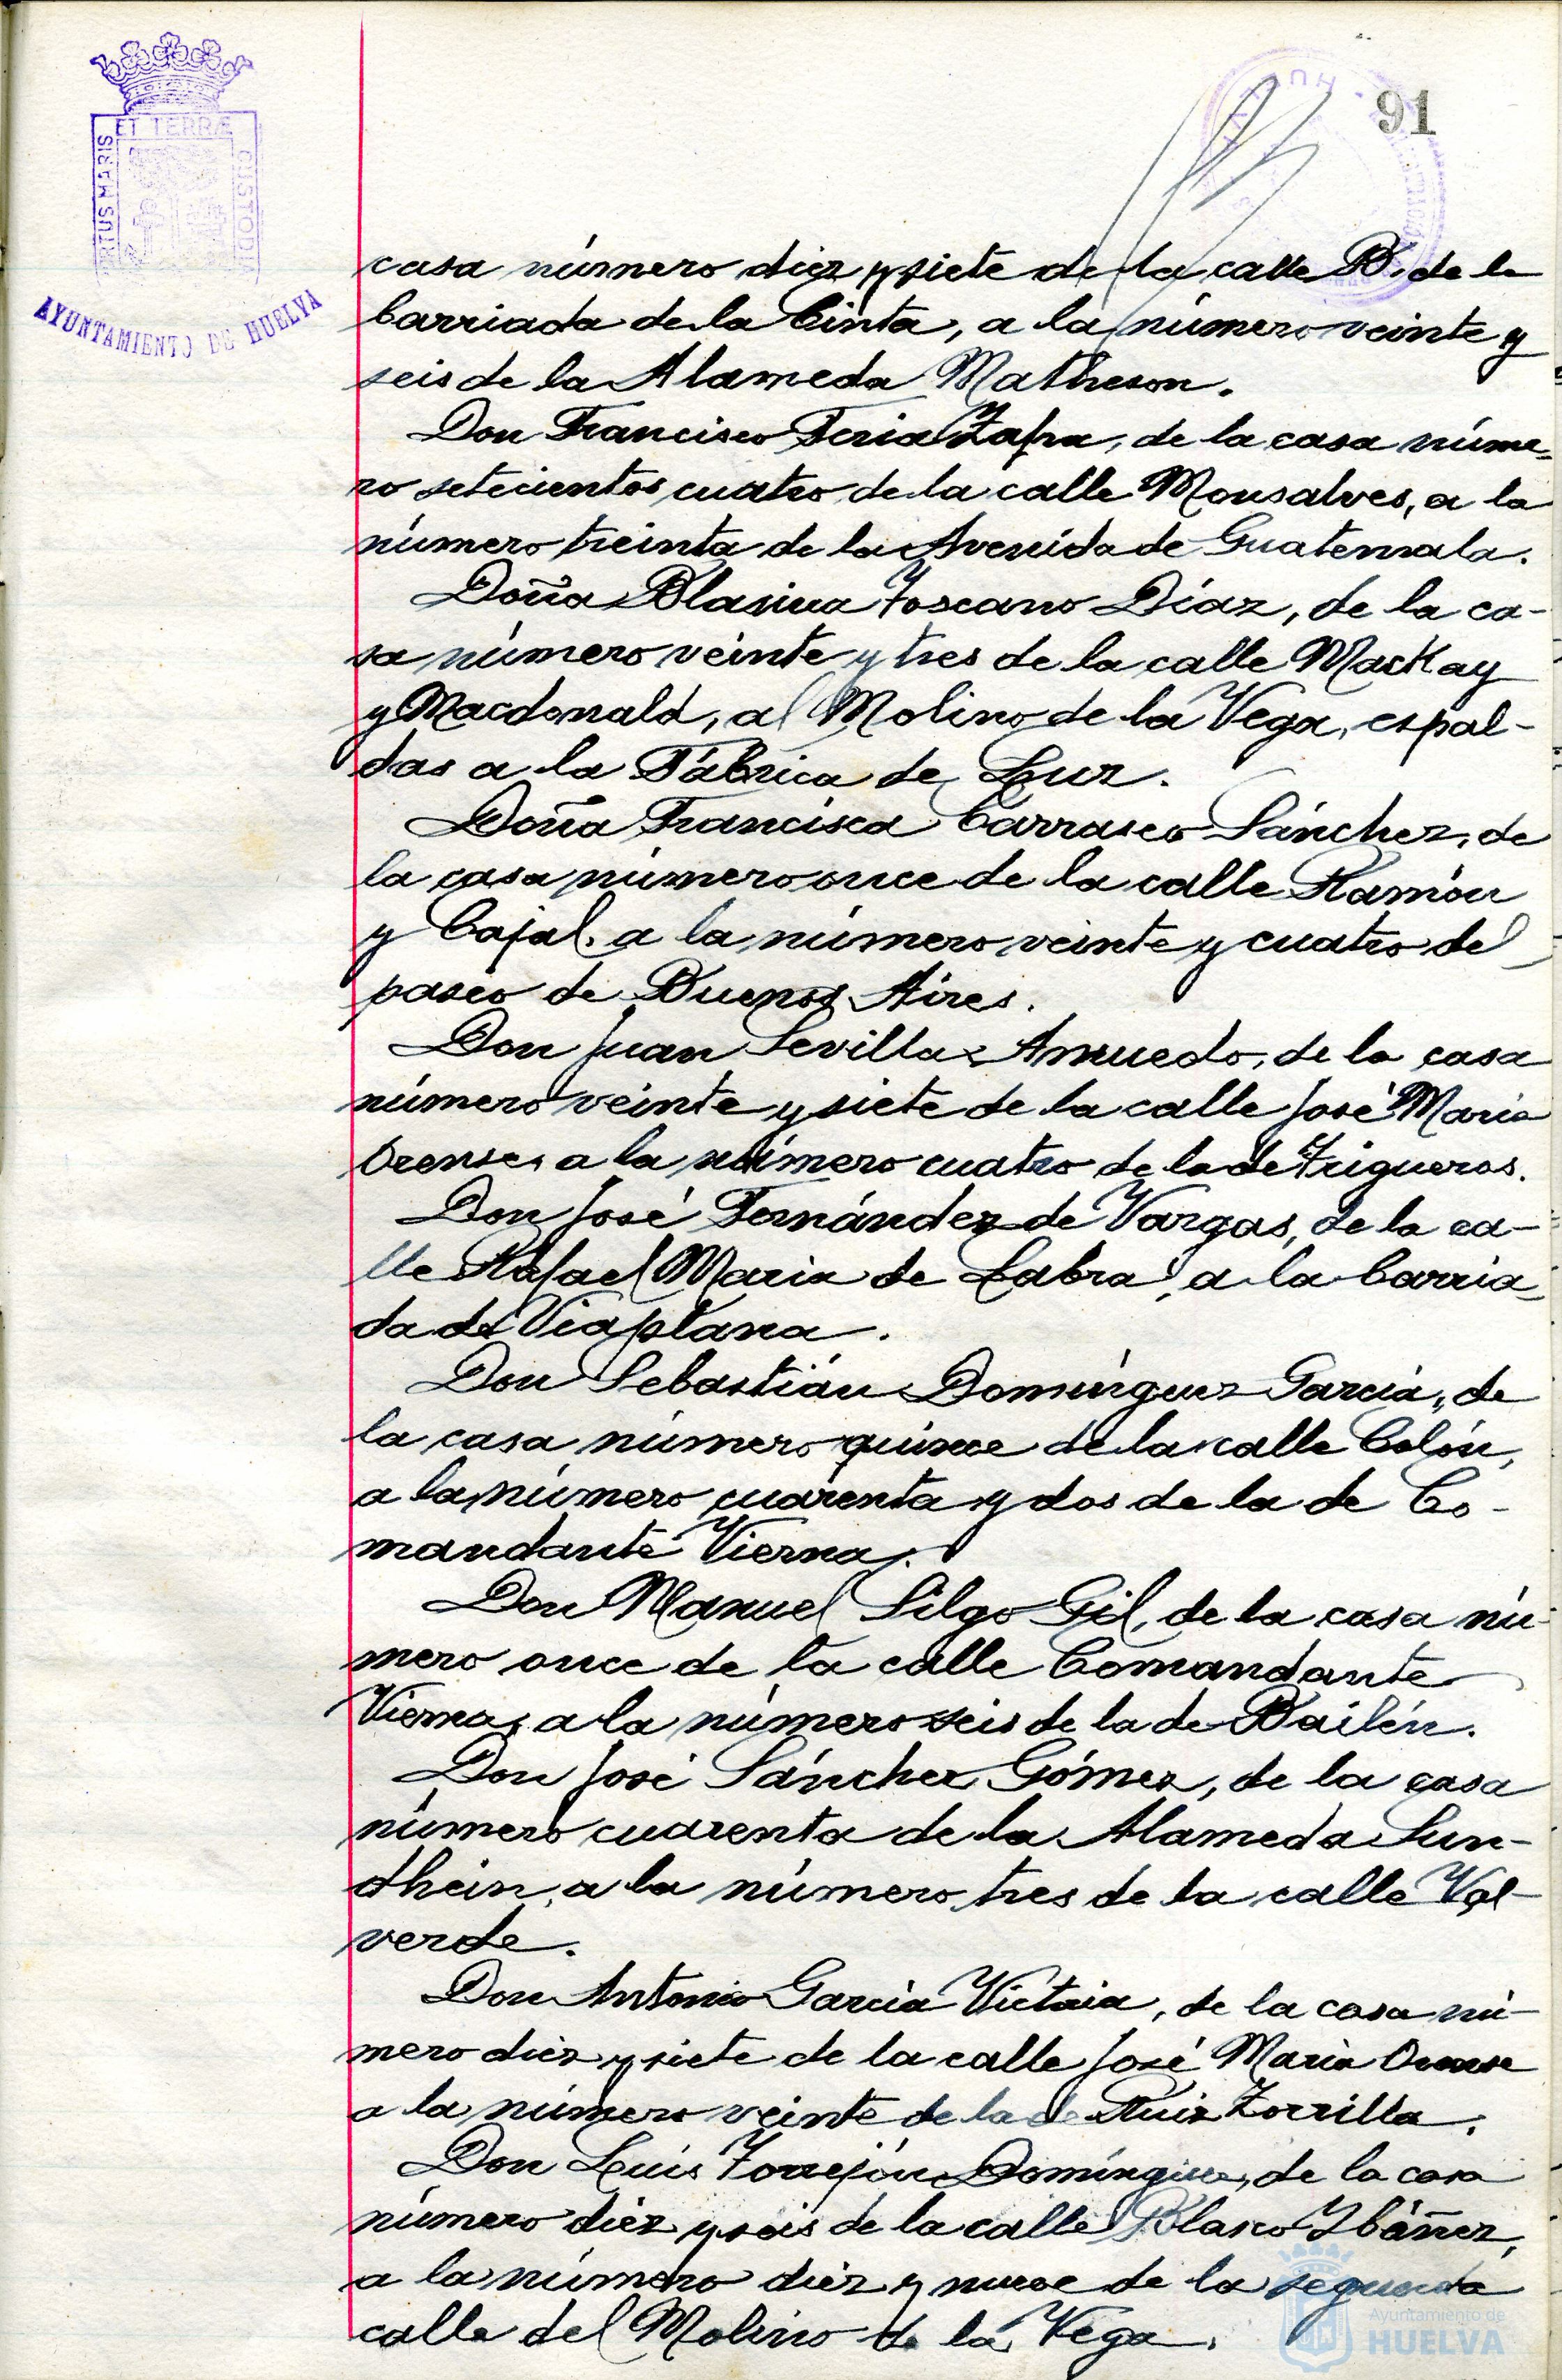 91
ET TERRÆ
PORTUS MARIS
CUSTODIA
AYUNTAMIENTO DE HUELVA
casa número diez y siete de la calle B. de la
barriada de la Cinta, a la número veinte y
seis de la Alameda Matheson.
Don Francisco Feria Zafra, de la casa núme-
ro setecientos cuatro de la calle Monsalves, a la
número treinta de la Avenida de Guatemala.
Doña Blasina Toscano Díaz, de la ca-
sa número veinte y tres de la calle Mackay
y Macdonald, al Molino de la Vega, espal-
das a la Fábrica de Luz.
Doña Francisca Carrasco Sánchez, de
la casa número once de la calle Ramón
y Cajal, a la número veinte y cuatro del
paseo de Buenos Aires.
Don Juan Sevilla Amuedo, de la casa
número veinte y siete de la calle José María
Orense, a la número cuatro de la de Trigueros.
Don José Fernández de Vargas, de la ca-
lle Rafael María de Labra, a la barria-
da de Viaplana.
Don Sebastián Domínguez García, de
la casa número quince de la calle Colón,
a la número cuarenta y dos de la de Co-
mandante Vierna.
Don Manuel Silgo Gil, de la casa nú-
mero once de la calle Comandante
Vierna, a la número seis de la de Bailén.
Don José Sánchez Gómez, de la casa
número cuarenta de la Alameda Sun-
dhein, a la número tres de la calle Val-
verde.
Don Antonio García Victoria, de la casa nú-
mero diez y siete de la calle José María Orense
a la número veinte de la de Ruiz Zorrilla.
Don Luis Torrejón Domínguez, de la casa
número diez y seis de la calle Blasco Ybáñez,
a la número diez y nueve de la segunda
calle del Molino de la Vega.
Ayuntamiento de
HUELVA